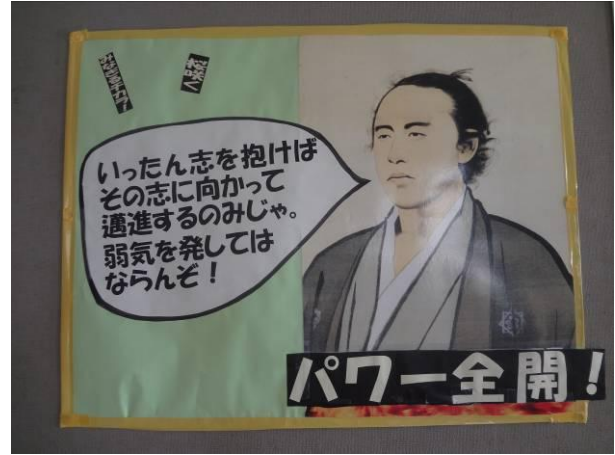 いったん志を抱けば
その志に向かって
邁進するのみじゃ。
弱気を発しては
ならんぞ！
パワー全開！